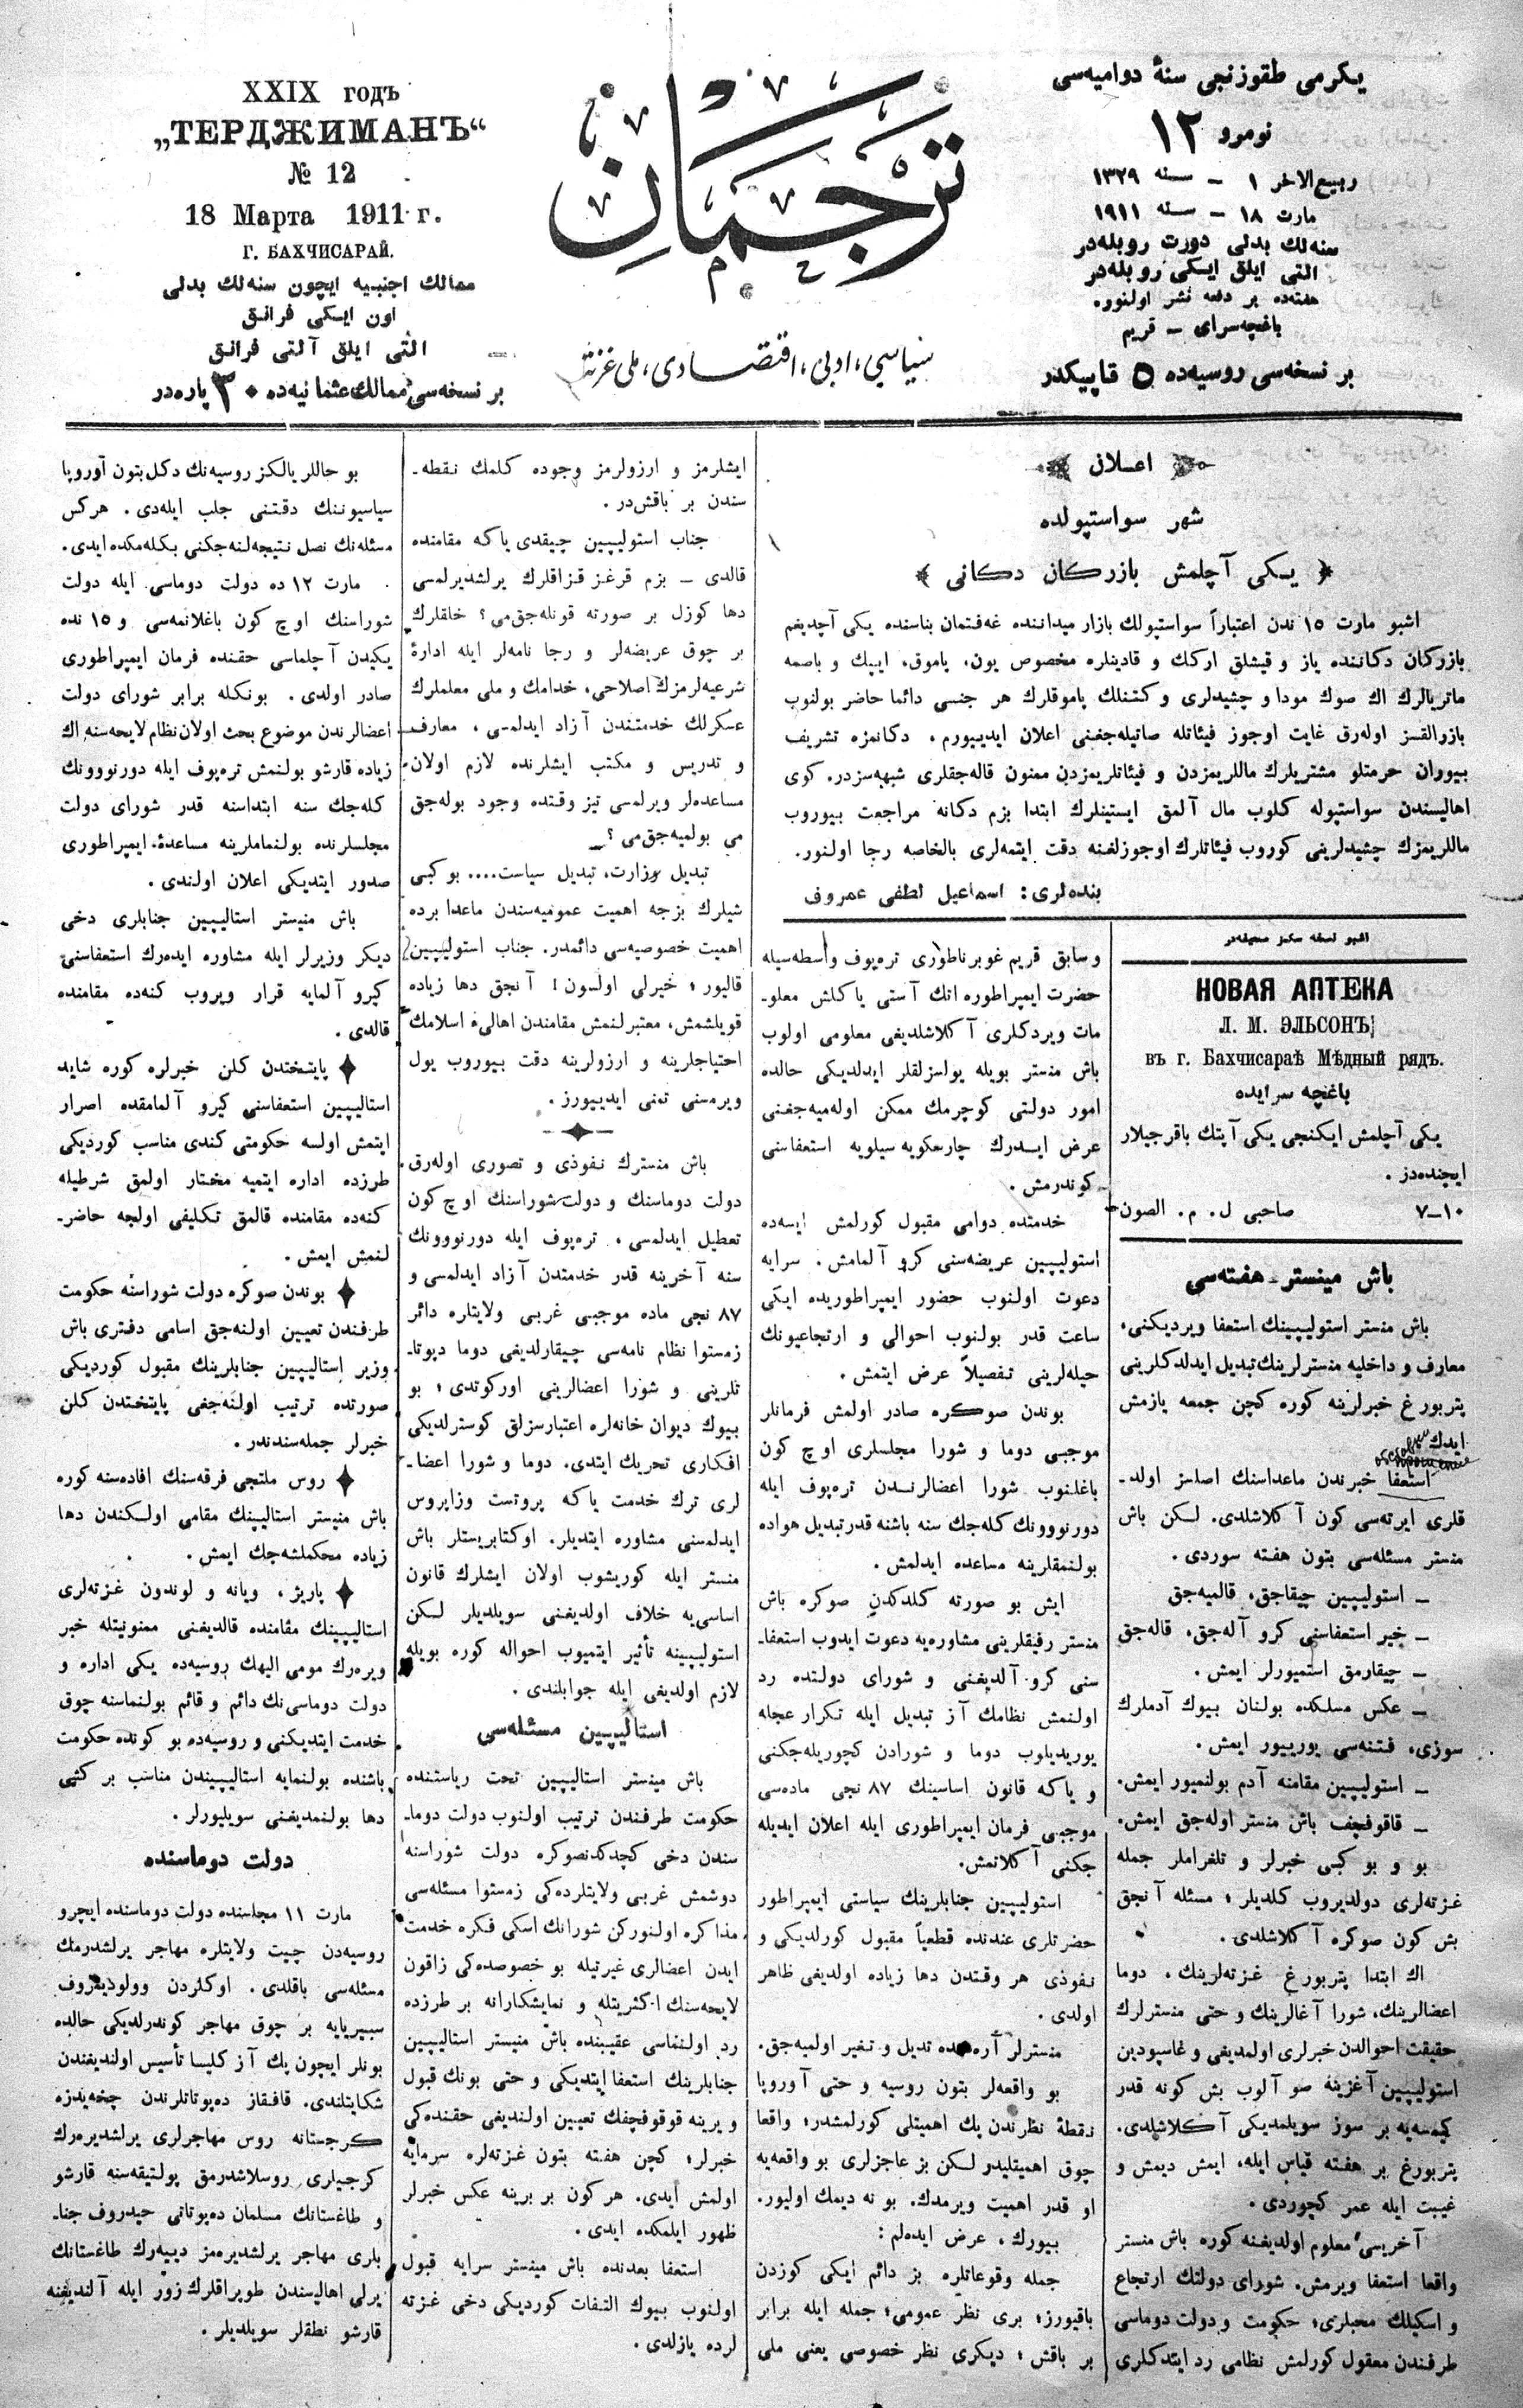 يكرمى طقوزنجى سنۀ دواميه‌سى
نومرو ١٢
ربيع الاخر ١ – سنه ١٣٢٩
مارت ١٨ – سنه ١٩١١
سنه‌لك بدلى دورت روبله‌در
التى ايلق ايكى روبله‌در
هفته‌ده بر دفعه نشر اولنور.
باغچه‌سراى – قريم
بر نسخه‌سى روسيه‌ده ٥ قاپيكدر
ترجمان
سياسى، ادبى، اقتصادى، ملى غزته
XXIX годъ
„ТЕРДЖИМАНЪ“
№ 12
18 Марта 1911 г.
Г. БАХЧИСАРАЙ.
ممالك اجنبيه ايچون سنه‌لك بدلى
اون ايكى فرانق
التى ايلق آلتى فرانق
بر نسخه‌سى ممالك عثمانيه‌ده ٣٠ پاره‌در
اعلان
شهر سواستپولده
﴿ يكى آچلمش بازركان دكانى ﴾
اشبو مارت ١٥ ندن اعتباراً سواستپولك بازار ميداننده غه‌فتمان بناسنده يكى آچديغم
بازركان دكاننده ياز و قيشلق اركك و قادينلره مخصوص يون، پاموق، ايپك و باصمه
ماتريالرك اك صوك مودا و چشيدلرى و كتنلك پاموقلرك هر جنسى دائما حاضر بولنوب
بازرالقسز اوله‌رق غايت اوجوز فيئاتله صاتيله‌جغنى اعلان ايدييورم. دكانمزه تشريف
بيوران حرمتلو مشتريلرك ماللريمزدن و فيئاتلريمزدن ممنون قاله‌جقلرى شبهه‌سزدر. كوى
اهاليسندن سواستپوله كلوب مال آلمق ايستينلرك ابتدا بزم دكانه مراجعت بيوروب
ماللريمزك چشيدلرينى كوروب فيئاتلرك اوجوزلغنه دقت ايتمه‌لرى بالخاصه رجا اولنور.
بنده‌لرى: اسماعيل لطفى عمروف
اشبو نسخه سكز صحيفه‌در
НОВАЯ АПТЕКА
Л. М. ЭЛЬСОНЪ
въ г. Бахчисараѣ Мѣдный рядъ.
باغچه سرايده
يكى آچلمش ايكنجى يكى آپتك باقرجيلار
ايچنده‌دز.
١٠–٧ صاحبى ل. م. الصون
باش مينستر هفته‌سى
باش منستر استوليپينك استعفا ويرديكنى،
معارف و داخليه منسترلرينك تبديل ايدلدكلرينى
پتربورغ خبرلرينه كوره كچن جمعه يازمش
ايدك.
استعفا خبرندن ماعداسنك اصلسز اولد-
قلرى ايرته‌سى كون آكلاشلدى. لكن باش
منستر مسئله‌سى بتون هفته سوردى.
– استوليپين چيقاجق، قالميه‌جق
– خير استعفاسنى كرو آله‌جق، قاله‌جق
– چيقارمق استميورلر ايمش.
– عكس مسلكده بولنان بيوك آدملرك
سوزى، فتنه‌سى يورييور ايمش.
– استوليپين مقامنه آدم بولنميور ايمش.
– قاقوفچف باش منستر اوله‌جق ايمش.
بو و بو كبى خبرلر و تلغراملر جمله
غزته‌لرى دولديروب كلديلر؛ مسئله آنجق
بش كون صوكره آكلاشلدى.
اك ابتدا پتربورغ غزته‌لرينك، دوما
اعضالرينك، شورا آغالرينك و حتى منسترلرك
حقيقت احوالدن خبرلرى اولمديغى و غاسپودين
استوليپين آغزينه صو آلوب بش كونه قدر
كيمسه‌يه بر سوز سويلمديكى آكلاشلدى.
پتربورغ بر هفته قياس ايله، ايمش ديمش و
غيبت ايله عمر كچوردى.
آخريسى معلوم اولديغنه كوره باش منستر
واقعا استعفا ويرمش. شوراى دولتك ارتجاع
و اسكيلك محبلرى؛ حكومت و دولت دوماسى
طرفندن معقول كورلمش نظامى رد ايتدكلرى
و سابق قريم غوبرناطورى تره‌پوف واسطه‌سيله
حضرت ايمپراطوره انك آستى ياكلش معلو-
مات ويردكلرى آكلاشلديغى معلومى اولوب
باش منستر بويله يولسزلقلر ايدلديكى حالده
امور دولتى كوچرمك ممكن اوله‌ميه‌جغنى
عرض ايدرك چارسكويه سيلويه استعفاسنى
كوندرمش.
خدمتده دوامى مقبول كورلمش ايسه‌ده
استوليپين عريضه‌سنى كرو آلمامش. سرايه
دعوت اولنوب حضور ايمپراطوريده ايكى
ساعت قدر بولنوب احوالى و ارتجاعيونك
حيله‌لرينى تفصيلاً عرض ايتمش.
بوندن صوكره صادر اولمش فرمانلر
موجبى دوما و شورا مجلسلرى اوچ كون
باغلنوب شورا اعضالرندن تره‌پوف ايله
دورنووونك كله‌جك سنه باشنه قدر تبديل هواده
بولنمقلرينه مساعده ايدلمش.
ايش بو صورته كلدكدن صوكره باش
منستر رفيقلرينى مشاوره‌يه دعوت ايدوب استعفا-
سنى كرو آلديغنى و شوراى دولتده رد
اولنمش نظامك آز تبديل ايله تكرار عجله
يوريديلوب دوما و شورادن كچوريله‌جكنى
و ياكه قانون اساسينك ٨٧ نجى ماده‌سى
موجبى فرمان ايمپراطورى ايله اعلان ايديله
جكنى آكلاتمش.
استوليپين جنابلرينك سياستى ايمپراطور
حضرتلرى عندنده قطعياً مقبول كورلديكى و
نفوذى هر وقتدن دها زياده اولديغى ظاهر
اولدى.
منسترلر آره‌سنده تديل و تغير اولميه‌جق.
بو واقعه‌لر بتون روسيه و حتى آوروپا
نقطۀ نظرندن پك اهميتلى كورلمشدر؛ واقعا
چوق اهميتليدر لكن بز عاجزلرى بو واقعه‌يه
او قدر اهميت ويرمدك. بو نه ديمك اوليور.
بيورك، عرض ايده‌لم:
جمله وقوعاتلره بز دائم ايكى كوزدن
باقيورز؛ برى نظر عمومى؛ جمله ايله برابر
بر باقش؛ ديكرى نظر خصوصى يعنى ملى
ايشلرمز و ارزولرمز وجوده كلمك نقطه-
سندن بر باقش‌در.
جناب استوليپين چيقدى ياكه مقامنده
قالدى – بزم قرغز قزاقلرك يرلشديرلمسى
دها كوزل بر صورته قونله‌جق‌مى؟ خلقلرك
بر چوق عريضه‌لر و رجا نامه‌لر ايله ادارۀ
شرعيه‌لرمزك اصلاحى، خدامك و ملى معلملرك
عسكرلك خدمتندن آزاد ايدلمسى، معارف
و تدريس و مكتب ايشلرنده لازم اولان
مساعده‌لر ويرلمسى تيز وقتده وجود بوله‌جق
مى بولميه‌جق‌مى؟
تبديل وزارت، تبديل سياست.... بو كبى
شيلرك بزجه اهميت عموميه‌سندن ماعدا برده
اهميت خصوصيه‌سى دائمدر. جناب استوليپين
قاليور؛ خيرلى اولسون! آنجق دها زياده
قويلشمش، معتبرلنمش مقامندن اهالىء اسلامك
احتياجلرينه و ارزولرينه دقت بيوروب يول
ويرمسنى تمنى ايدييورز.
باش منسترك نفوذى و تصورى اوله‌رق
دولت دوماسنك و دولت شوراسنك اوچ كون
تعطيل ايدلمسى، تره‌پوف ايله دورنووونك
سنه آخرينه قدر خدمتدن آزاد ايدلمسى و
٨٧ نجى ماده موجبى غربى ولايتلره دائر
زمستوا نظام نامه‌سى چيقارلديغى دوما دپوتا-
تلرينى و شورا اعضالرينى اوركوتدى؛ بو
بيوك ديوان خانه‌لره اعتبارسزلق كوسترلديكى
افكارى تحريك ايتدى. دوما و شورا اعضا-
لرى ترك خدمت ياكه پروتست وزاپروس
ايدلمسنى مشاوره ايتديلر. اوكتابريستلر باش
منستر ايله كوريشوب اولان ايشلرك قانون
اساسى‌يه خلاف اولديغنى سويلديلر لكن
استوليپينه تأثير ايتميوب احواله كوره بويله
لازم اولديغى ايله جوابلندى.
استاليپين مسئله‌سى
باش مينستر استاليپين تحت رياستنده
حكومت طرفندن ترتيب اولنوب دولت دوما-
سندن دخى كچدكدنصوكره دولت شوراسنه
دوشمش غربى ولايتلرده‌كى زمستوا مسئله‌سى
مذاكره اولنوركن شورانك اسكى فكره خدمت
ايدن اعضالرى غيرتيله بو خصوصده‌كى زاقون
لايحه‌سنك اكثريتله و نمايشكارانه بر طرزده
رد اولنماسى عقيبنده باش منيستر استاليپين
جنابلرينك استعفا ايتديكى و حتى بونك قبول
و يرينه قوقوفچفك تعيين اولنديغى حقنده‌كى
خبرلر؛ كچن هفته بتون غزته‌لره سرمايه
اولمش ايدى. هر كون بر برينه عكس خبرلر
ظهور ايلمكده ايدى.
استعفا بعدنده باش مينستر سرايه قبول
اولنوب بيوك التفات كورديكى دخى غزته
لرده يازلدى.
بو حاللر يالكز روسيه‌نك دكل بتون آوروپا
سياسيوننك دقتنى جلب ايله‌دى. هركس
مسئله‌نك نصل نتيجه‌لنه‌جكنى بكله‌مكده ايدى.
مارت ١٢ ده دولت دوماسى ايله دولت
شوراسنك اوچ كون باغلانمه‌سى و ١٥ نده
يكيدن آچلماسى حقنده فرمان ايمپراطورى
صادر اولدى. بونكله برابر شوراى دولت
اعضالرندن موضوع بحث اولان نظام لايحه‌سنه اك
زياده قارشو بولنمش تره‌پوف ايله دورنووونك
كله‌جك سنه ابتداسنه قدر شوراى دولت
مجلسلرنده بولنماملرينه مساعدۀ ايمپراطورى
صدور ايتديكى اعلان اولندى.
باش منيستر استاليپين جنابلرى دخى
ديكر وزيرلر ايله مشاوره ايده‌رك استعفاسنى
كيرو آلمايه قرار ويروب كنه‌ده مقامنده
قالدى.
پايتختدن كلن خبرلره كوره شايد
استاليپين استعفاسنى كيرو آلمامقده اصرار
ايتمش اولسه حكومتى كندى مناسب كورديكى
طرزده اداره ايتميه مختار اولمق شرطيله
كنه‌ده مقامنده قالمق تكليفى اولجه حاضر-
لنمش ايمش.
بوندن صوكره دولت شوراسنه حكومت
طرفندن تعيين اولنه‌جق اسامى دفترى باش
وزير استاليپين جنابلرينك مقبول كورديكى
صورتده ترتيب اولنه‌جغى پايتختدن كلن
خبرلر جمله‌سندندر.
روس ملتجى فرقه‌سنك افاده‌سنه كوره
باش منيستر استاليپينك مقامى اولكندن دها
زياده محكملشه‌جك ايمش.
پاريز، ويانه و لوندون غزته‌لرى
استاليپينك مقامنده قالديغنى ممنونيتله خبر
ويره‌رك مومى اليهك روسيه‌ده يكى اداره و
دولت دوماسى‌نك دائم و قائم بولنماسنه چوق
خدمت ايتديكنى و روسيه‌ده بو كونده حكومت
باشنده بولنمايه استاليپيندن مناسب بر كشى
دها بولنمديغنى سويليورلر.
دولت دوماسنده
مارت ١١ مجلسنده دولت دوماسنده ايچرو
روسيه‌دن چيت ولايتلره مهاجر يرلشدرمك
مسئله‌سى باقلدى. اوكلردن وولوديمروف
سبيريايه بر چوق مهاجر كوندرلديكى حالده
بونلر ايچون پك آز كليسا تأسيس اولنديغندن
شكايتلندى. قافقاز ده‌پوتاتلرندن چخه‌يدزه
كرجستانه روس مهاجرلرى يرلشديره‌رك
كرجيلرى روسلاشدرمق پولتيقه‌سنه قارشو
و طاغستانك مسلمان ده‌پوتاتى حيدروف جنا-
بلرى مهاجر يرلشديره‌مز دييه‌رك طاغستانك
يرلى اهاليسندن طوپراقلرك زور ايله آلنديغنه
قارشو نطقلر سويلديلر.